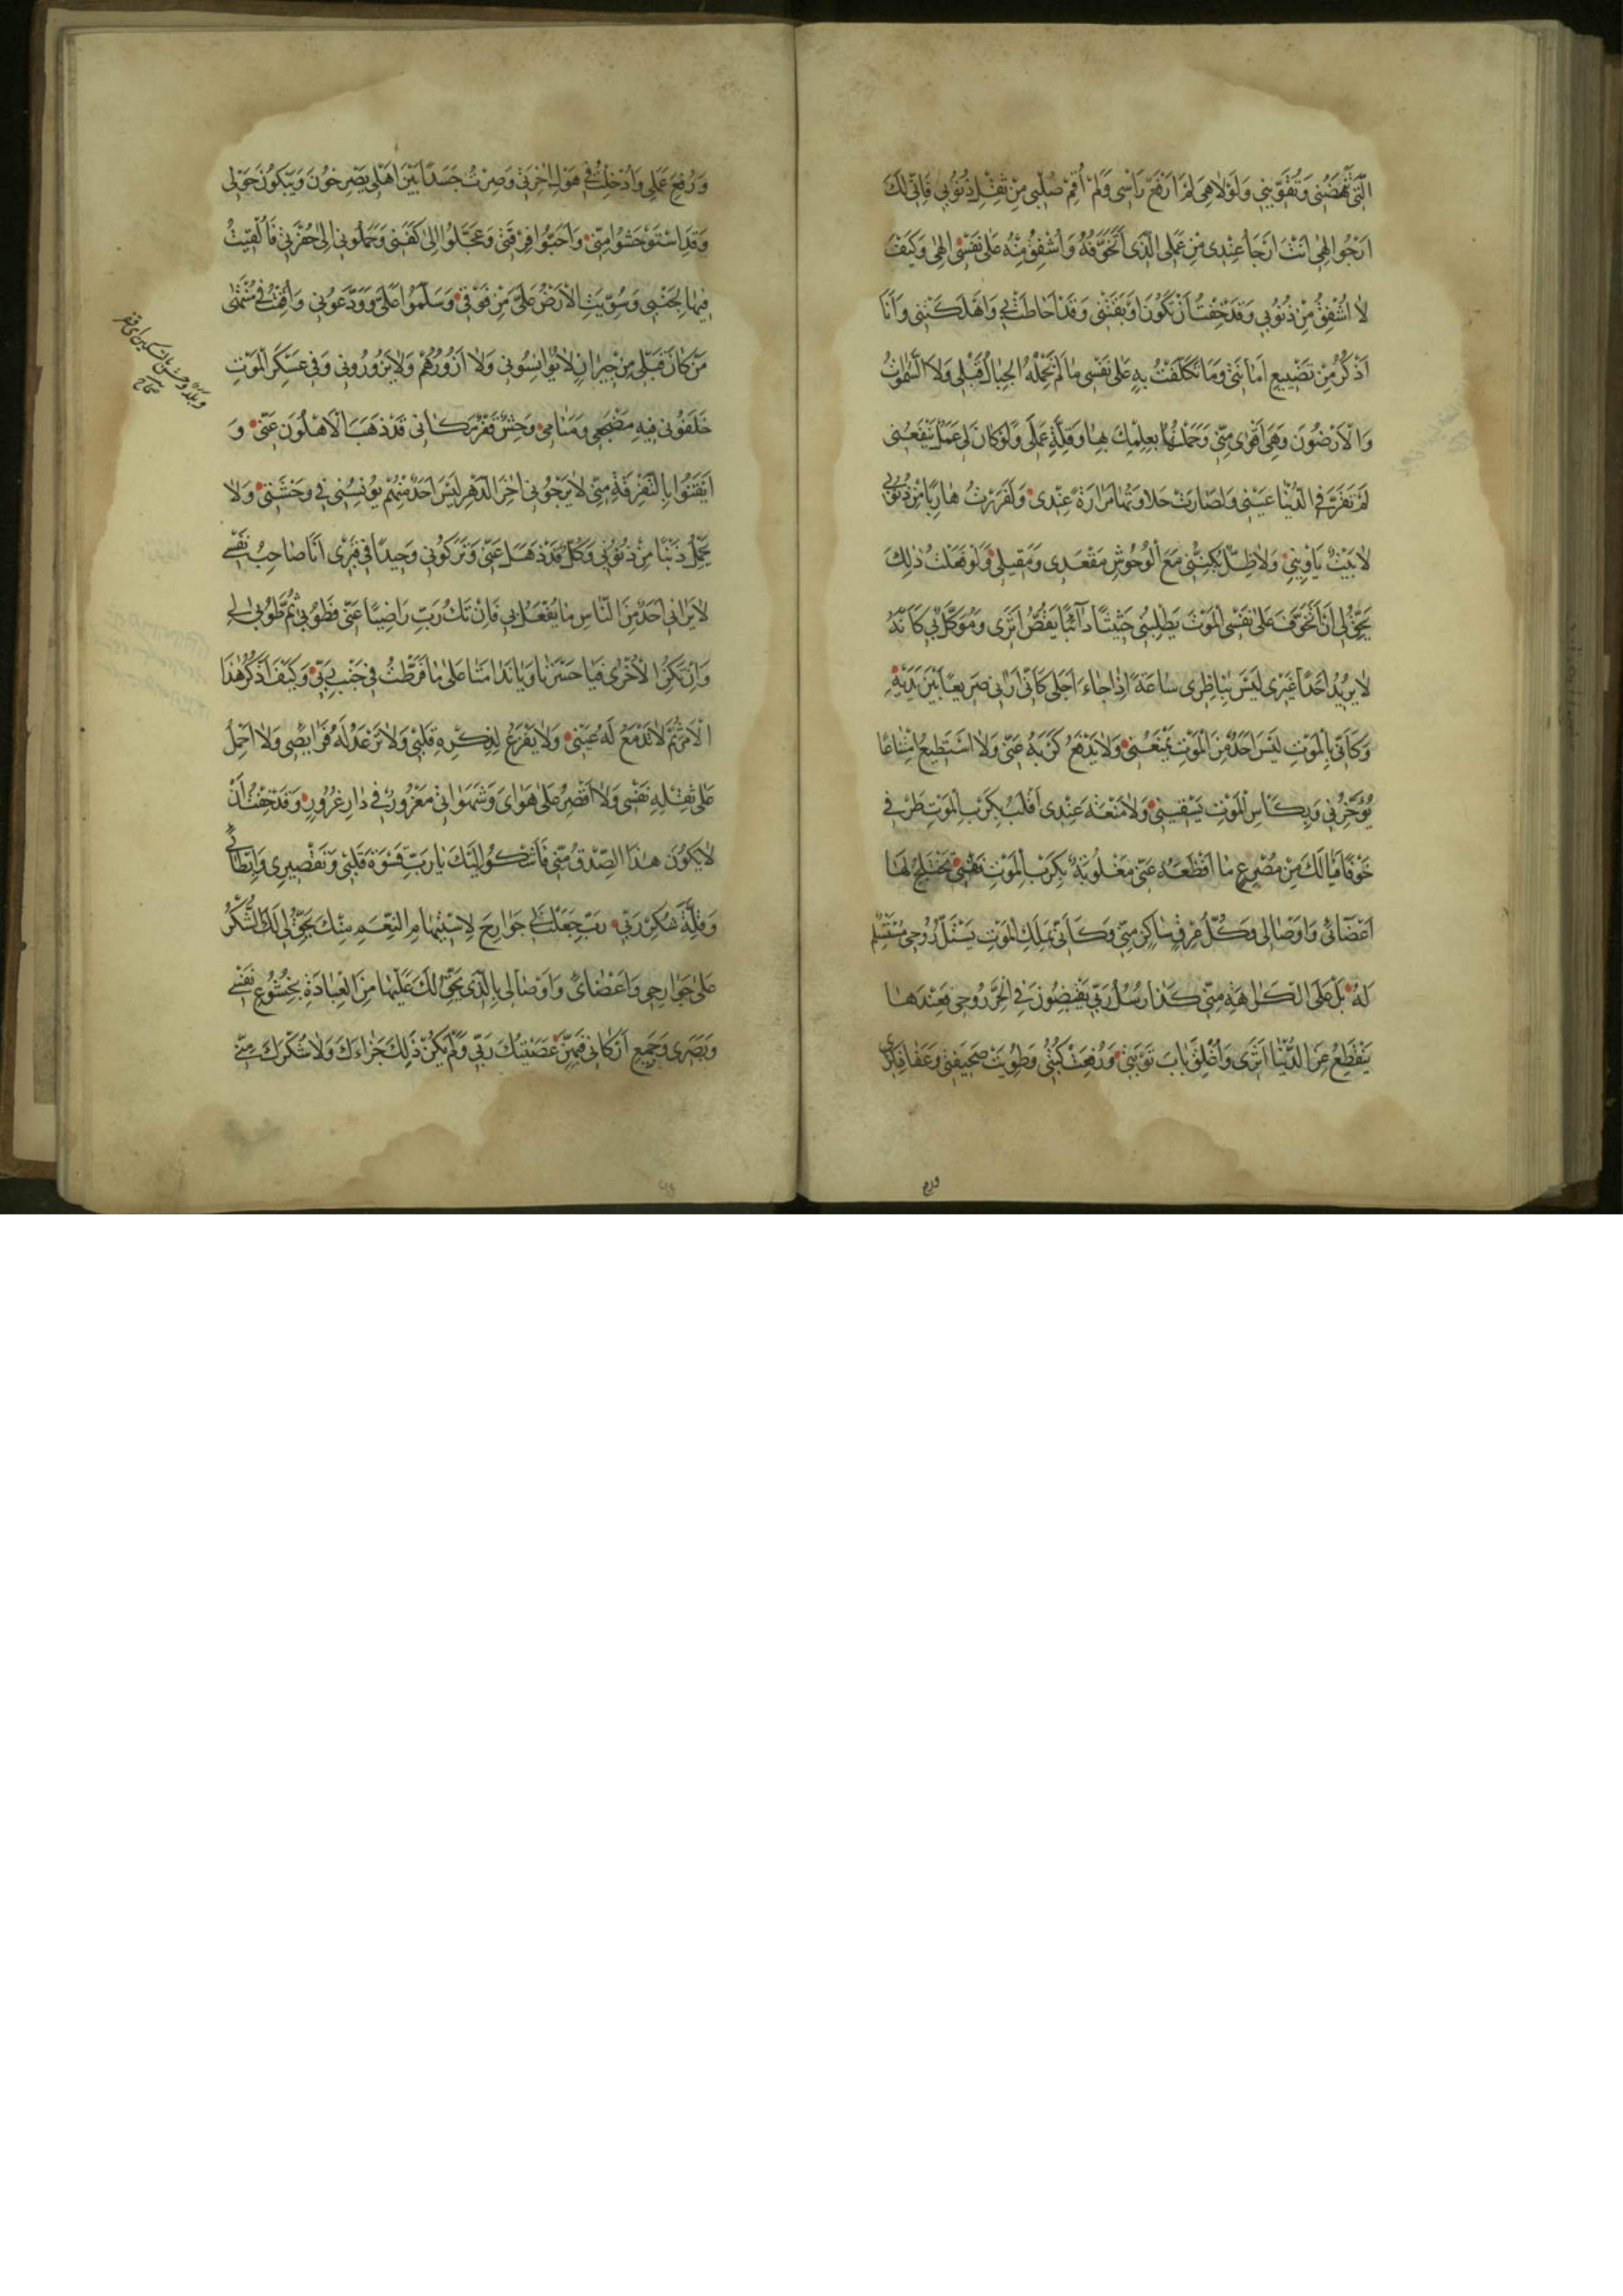 الَّتِي تُنْهِضُنِي وَتُقَوِّينِي وَلَوْلَا هِيَ لَمْ أَرْفَعْ رَأْسِي وَلَمْ أُقِمْ صُلْبِي مِنْ ثِقْلِ ذُنُوبِي فَإِنِّي لَكَ
أَرْجُو إِلٰهِي أَنْتَ أَرْجَأُ عِنْدِي مِنْ عَمَلِي الَّذِي أَتَخَوَّفُهُ وَأُشْفِقُ مِنْهُ عَلَى نَفْسِي إِلٰهِي وَكَيْفَ
لَا أُشْفِقُ مِنْ ذُنُوبِي وَقَدْ خِفْتُ أَنْ تَكُونَ أَوْبَقَتْنِي وَقَدْ أَحَاطَتْ بِي وَأَهْلَكَتْنِي وَأَنَا
أَذْكُرُ مِنْ تَضْيِيعِ أَمَانَتِي وَمَا تَكَلَّفْتُ بِهِ عَلَى نَفْسِي مَا لَمْ تَحْمِلْهُ الْجِبَالُ قَبْلِي وَلَا السَّمٰوَاتُ
وَالْأَرَضُونَ وَهِيَ أَقْوَى مِنِّي وَحَمَلْتُهَا بِعِلْمِكَ بِهَا وَقِلَّةِ عَمَلِي وَلَوْ كَانَ لِي عَمَلٌ يَنْفَعُنِي
لَمْ تَقَرَّ فِي الدُّنْيَا عَيْنِي وَلَصَارَتْ حَلَاوَتُهَا مَرَارَةً عِنْدِي وَلَفَرَرْتُ هَارِبًا مِنْ ذُنُوبِي
لَا بَيْتٌ يَأْوِينِي وَلَا ظِلٌّ يُكِنُّنِي مَعَ الْوُحُوشِ مَقْعَدِي وَمَقِيلِي وَلَوْ فَعَلْتُ ذٰلِكَ
يَحِقُّ لِي أَنْ أَتَخَوَّفَ عَلَى نَفْسِي الْمَوْتَ يَطْلُبُنِي حَثِيثًا دَائِبًا يَقُصُّ أَثَرِي وَمُوَكَّلٌ بِي كَأَنَّهُ
لَا يُرِيدُ أَحَدًا غَيْرِي لَيْسَ بِنَاظِرِي سَاعَةً إِذَا جَاءَ أَجَلِي كَأَنِّي أَرَانِي صَرِيعًا بَيْنَ يَدَيْهِ
وَكَأَنِّي بِالْمَوْتِ لَيْسَ أَحَدٌ مِنَ الْمَوْتِ يَمْنَعُنِي وَلَا يَدْفَعُ كَرْبَهُ عَنِّي وَلَا أَسْتَطِيعُ امْتِنَاعًا
يُؤَخِّرُنِي وَبِكَأْسِ الْمَوْتِ يَسْقِينِي وَلَا مَنَعَةَ عِنْدِي أُقَلِّبُ بِكَرْبِ الْمَوْتِ طَرْفِي
خَوْفًا فَيَا لَكَ مِنْ مَصْرَعٍ مَا أَفْظَعَهُ عَنِّي مَغْلُوبَةٌ بِكَرْبِ الْمَوْتِ نَفْسِي تَخْتَلِجُ لَهَا
أَعْضَائِي وَأَوْصَالِي وَكُلُّ عِرْقٍ سَاكِنٍ مِنِّي وَكَأَنِّي بِمَلَكِ الْمَوْتِ يَسْتَلُّ رُوحِي مُسْتَسْلِمٌ
لَهُ بَلْ عَلَى الْكَرَاهَةِ مِنِّي كَذَا رُسُلُ رَبِّي يَقْبِضُونَ فِي الْحَرِّ رُوحِي فَعِنْدَهَا
يَنْقَطِعُ عَنِ الدُّنْيَا أَثَرِي وَأُغْلِقَ بَابُ تَوْبَتِي وَرُفِعَتْ كُتُبِي وَطُوِيَتْ صَحِيفَتِي وَعَفَا ذِكْرِي
وَرُفِعَ عَمَلِي وَأُدْخِلْتُ فِي هَوْلِ آخِرَتِي وَصِرْتُ جَسَدًا بَيْنَ أَهْلِي يَصْرُخُونَ وَيَبْكُونَ حَوْلِي
وَقَدِ اسْتَوْحَشُوا مِنِّي وَأَحَبُّوا فُرْقَتِي وَعَجَّلُوا إِلَى كَفَنِي وَحَمَلُونِي إِلَى حُفْرَتِي فَأُلْقِيتُ
فِيهَا لِجَنْبِي وَسُوِّيَتِ الْأَرْضُ عَلَيَّ مِنْ فَوْقِي وَسَلَّمُوا عَلَيَّ وَوَدَّعُونِي وَأَيْقَنْتُ
مَنْ كَانَ قَبْلِي مِنْ جِيرَانٍ لَا يُؤَانِسُونِي وَلَا أَزُورُهُمْ وَلَا يَزُورُونِي وَفِي عَسْكَرِ الْمَوْتِ
خَلَّفُونِي فِيهِ مَضْجَعِي وَمَنَامِي وَحِشٌ قَفْرٌ مَكَانِي قَدْ ذَهَبَ الْأَهْلُونَ عَنِّي وَ
أَيْقَنُوا بِالتَّفْرِقَةِ مِنِّي لَا يَرْجُونِي آخِرَ الدَّهْرِ لَيْسَ أَحَدٌ مِنْهُمْ يُؤْنِسُنِي فِي وَحْشَتِي وَلَا
يَحْمِلُ ذَنْبًا مِنْ ذُنُوبِي وَكُلٌّ قَدْ ذَهَلَ عَنِّي وَتَرَكُونِي وَحِيدًا فِي قَبْرِي أَنَا صَاحِبُ نَفْسِي
لَا يَرَانِي أَحَدٌ مِنَ النَّاسِ مَا يُفْعَلُ بِي فَإِنْ تَكُ رَبِّ رَاضِيًا عَنِّي فَطُوبَى ثُمَّ طُوبَى لِي
وَإِنْ تَكُنِ الْأُخْرَى فَيَا حَسْرَتَا وَيَا نَدَامَتَا عَلَى مَا فَرَّطْتُ فِي جَنْبِ رَبِّي وَكَيْفَ أَذْكُرُ هٰذَا
الْأَمْرَ ثُمَّ لَا تَدْمَعُ لَهُ عَيْنِي وَلَا يَفْزَعُ لِذِكْرِهِ قَلْبِي وَلَا تَرْعَدُ لَهُ فَرَائِصِي وَلَا أَحْمِلُ
عَلَى ثِقْلِهِ نَفْسِي وَلَا أُقْصِرُ عَلَى هَوَايَ وَشَهَوَاتِي مَغْرُورٌ فِي دَارِ غُرُورٍ وَقَدْ خِفْتُ أَنْ
لَا يَكُونَ هٰذَا الصِّدْقُ مِنِّي فَأَشْكُو إِلَيْكَ يَا رَبِّ قَسْوَةَ قَلْبِي وَتَقْصِيرِي وَإِبْطَائِي
وَقِلَّةَ شُكْرِ رَبِّي رَبِّ جَعَلْتَ لِي جَوَارِحَ النِّعَمِ مِنْكَ يَحِقُّ لِي لَكَ الشُّكْرُ
عَلَى جَوَارِحِي وَأَعْضَائِي وَأَوْصَالِي بِالَّذِي يَحِقُّ لَكَ عَلَيْهَا مِنَ الْعِبَادَةِ بِخُشُوعِ نَفْسِي
وَبَصَرِي وَجَمِيعِ أَرْكَانِي فَبِهِنَّ عَصَيْتُكَ رَبِّي وَلَمْ يَكُنْ ذٰلِكَ جَزَاءَكَ وَلَا شُكْرَكَ مِنِّي